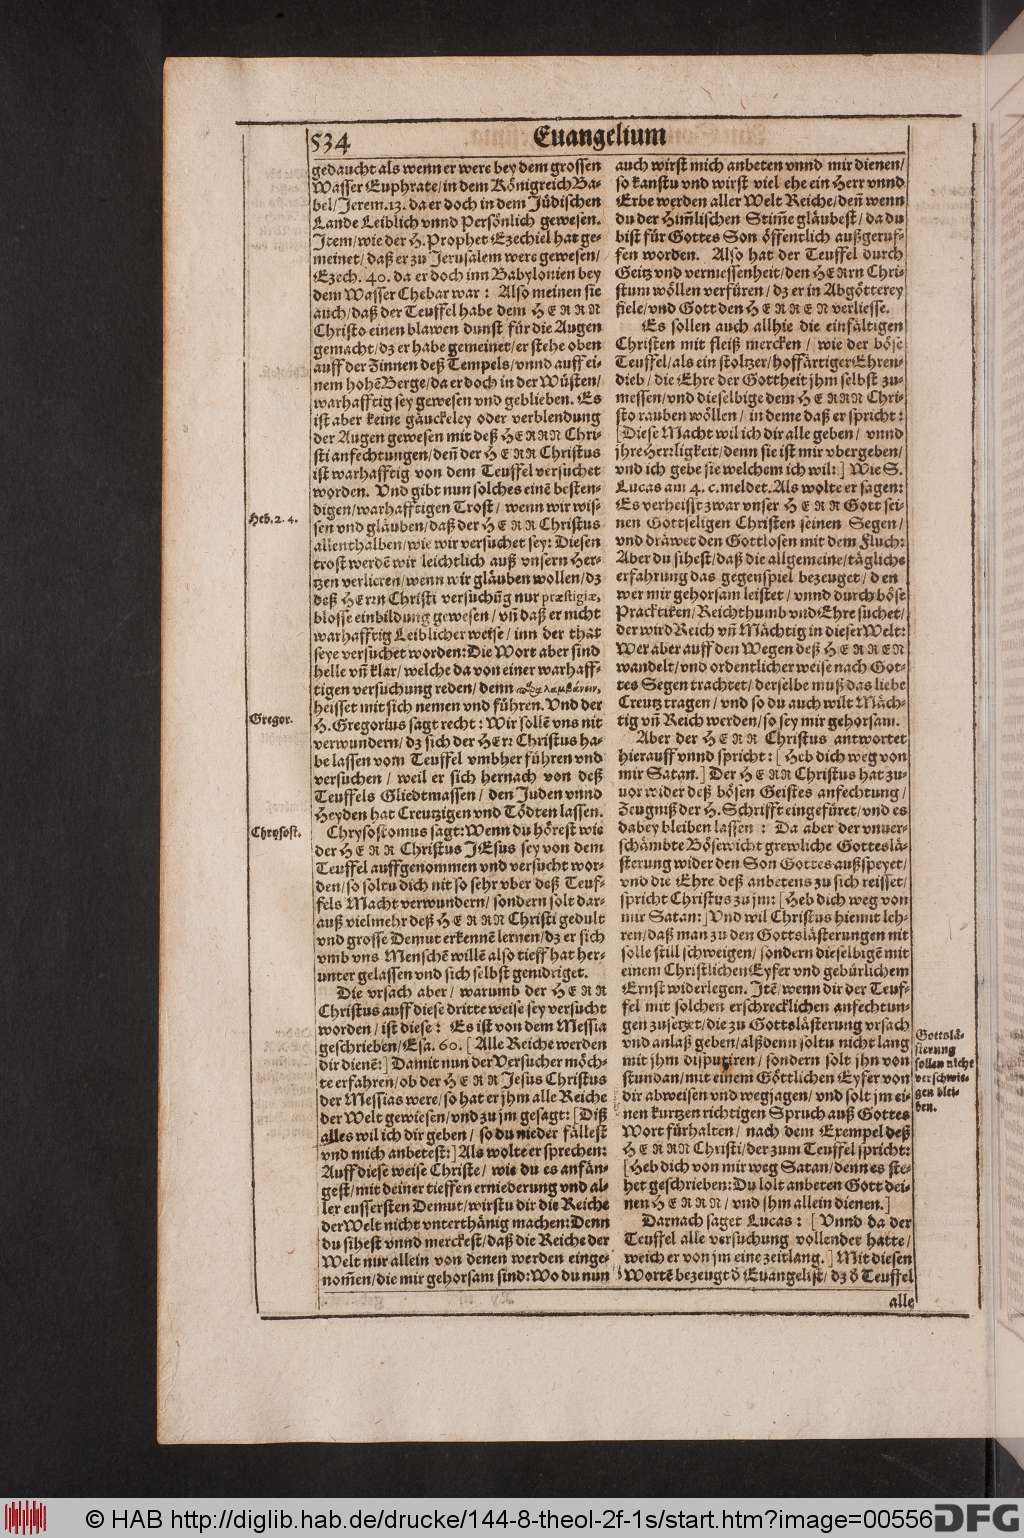 534
Euangelium
gedaucht als wenn er were bey dem grossen
Wasser Euphrate/in dem Königreich Ba-
bel/Jerem.13. da er doch in dem Jüdischen
Lande Leiblich vnnd Persönlich gewesen.
Item/wie der H. Prophet Ezechiel hat ge-
meinet/daß er zu Jerusalem were gewesen/
Ezech. 40. da er doch inn Babylonien bey
dem Wasser Chebar war: Also meinen sie
auch/daß der Teuffel habe dem HERRN
Christo einen blawen dunst für die Augen
gemacht/dz er habe gemeinet/er stehe oben
auff der Zinnen deß Tempels/vnnd auff ei-
nem hohē Berge/da er doch in der Wüsten/
warhafftig sey gewesen vnd geblieben. Es
ist aber keine gäuckeley oder verblendung
der Augen gewesen mit deß HERRN Chri-
sti anfechtungen/deñ der HERR Christus
ist warhafftig von dem Teuffel versuchet
worden. Vnd gibt nun solches einē besten-
digen/warhafftigen Trost/ wenn wir wis-
sen vnd gläuben/daß der HERR Christus
allenthalben/wie wir versuchet sey: Diesen
trost werdē wir leichtlich auß vnsern Her-
tzen verlieren/wenn wir gläuben wollen/dz
deß HErrn Christi versuchūg nur præstigiæ,
blosse einbildung gewesen/vñ daß er nicht
warhafftig Leiblicher weise/inn der that
seye versuchet worden: Die Wort aber sind
helle vñ klar/welche da von einer warhaff-
tigen versuchung reden/denn παραλαμβάνειν,
heisset mit sich nemen vnd führen. Vnd der
H. Gregorius sagt recht: Wir sollē vns nit
verwundern/dz sich der HErr Christus ha-
be lassen vom Teuffel vmbher führen vnd
versuchen/ weil er sich hernach von deß
Teuffels Gliedtmassen/ den Juden vnnd
Heyden hat Creutzigen vnd Tödten lassen.
Chrysostomus sagt: Wenn du hörest wie
der HERR Christus JEsus sey von dem
Teuffel auffgenommen vnd versucht wor-
den/so soltu dich nit so sehr vber deß Teuf-
fels Macht verwundern/ sondern solt dar-
auß vielmehr deß HERRN Christi gedult
vnd grosse Demut erkennē lernen/dz er sich
vmb vns Menschē willē also tieff hat her-
unter gelassen vnd sich selbst genidriget.
Die vrsach aber/ warumb der HERR
Christus auff diese dritte weise sey versucht
worden/ist diese: Es ist von dem Messia
geschrieben/Esa. 60. [Alle Reiche werden
dir dienē:] Damit nun der Versucher möch-
te erfahren/ob der HERR Jesus Christus
der Messias were/so hat er jhm alle Reiche
der Welt gewiesen/vnd zu jm gesagt: [Diß
alles wil ich dir geben/ so du nieder fällest
vnd mich anbetest:] Als wolte er sprechen:
Auff diese weise Christe/ wie du es anfän-
gest/mit deiner tieffen erniederung vnd al-
ler eussersten Demut/wirstu dir die Reiche
der Welt nicht vnterthänig machen: Denn
du sihest vnnd merckest/daß die Reiche der
Welt nur allein von denen werden einge
nom̃en/die mir gehorsam sind: Wo du nun
Heb. 2. 4.
Gregor.
Chrysost.
auch wirst mich anbeten vnnd mir dienen/
so kanstu vnd wirst viel ehe ein Herr vnnd
Erbe werden aller Welt Reiche/deñ wenn
du der Him̃lischen Stim̃e gläubest/da du
bist für Gottes Son öffentlich außgeruf-
fen worden. Also hat der Teuffel durch
Geitz vnd vermessenheit/den HErrn Chri-
stum wöllen verfüren/dz er in Abgötterey
fiele/vnd Gott den HERREN verliesse.
Es sollen auch allhie die einfältigen
Christen mit fleiß mercken/ wie der böse
Teuffel/als ein stoltzer/hoffärtiger Ehren-
dieb/die Ehre der Gottheit jhm selbst zu-
messen/vnd dieselbige dem HERRN Chri-
sto rauben wöllen/ in deme daß er spricht:
[Diese Macht wil ich dir alle geben/ vnnd
jhre Herrligkeit/denn sie ist mir vbergeben/
vnd ich gebe sie welchem ich wil:] Wie S.
Lucas am 4. c. meldet. Als wolte er sagen:
Es verheisst zwar vnser HERR Gott sei-
nen Gottseligen Christen seinen Segen/
vnd dräwet den Gottlosen mit dem Fluch:
Aber du sihest/daß die allgemeine/tägliche
erfahrung das gegenspiel bezeuget/ den
wer mir gehorsam leistet/ vnnd durch böse
Practiken/Reichthumb vnd Ehre suchet/
der wird Reich vñ Mächtig in dieser Welt:
Wer aber auff den Wegen deß HERREN
wandelt/vnd ordentlicher weise nach Got-
tes Segen trachtet/derselbe muß das liebe
Creutz tragen/ vnd so du auch wilt Mäch-
tig vñ Reich werden/so sey mir gehorsam.
Aber der HERR Christus antwortet
hierauff vnnd spricht: [Heb dich weg von
mir Satan.] Der HERR Christus hat zu-
uor wider deß bösen Geistes anfechtung/
Zeugniß der H. Schrifft eingefüret/vnd es
dabey bleiben lassen: Da aber der vnuer-
schämbte Bösewicht grewliche Gotteslä-
sterung wider den Son Gottes außspeyet/
vnd die Ehre deß anbetens zu sich reisset/
spricht Christus zu jm: [Heb dich weg von
mir Satan:] Vnd wil Christus hiemit leh-
ren/daß man zu den Gottslästerungen nit
solle still schweigen/sondern dieselbigē mit
einem Christlichen Eyfer vnd gebürlichem
Ernst widerlegen. Itē/wenn dir der Teuf-
fel mit solchen erschrecklichen anfechtun-
gen zusetzet/die zu Gottslästerung vrsach
vnd anlaß geben/alßdenn soltu nicht lang
mit jhm disputiren/ sondern solt jhn von
stundan/mit einem Göttlichen Eyfer von
dir abweisen vnd wegjagen/vnd solt jm ei-
nen kurtzen richtigen Spruch auß Gottes
Wort fürhalten/ nach dem Exempel deß
HERRN Christi/der zum Teuffel spricht:
[Heb dich von mir weg Satan/denn es ste-
het geschrieben: Du solt anbeten Gott dei-
nen HERRN/vnd jhm allein dienen.]
Darnach saget Lucas: [Vnnd da der
Teuffel alle versuchung vollendet hatte/
weich er von jm eine zeitlang.] Mit diesen
Wortē bezeugt ð Euangelist/dz ð Teuffel
alle
Gottslä-
sterung
sollen nicht
verschwie-
gen blei-
ben.
© HAB http://diglib.hab.de/drucke/144-8-theol-2f-1s/start.htm?image=00556
DFG